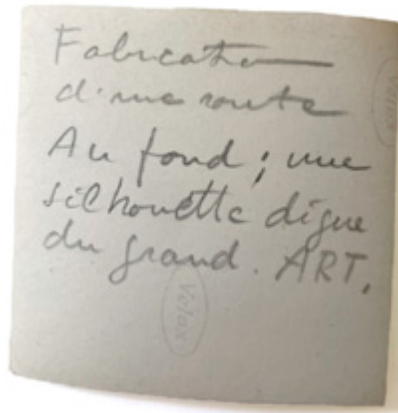 Fabrication
d'une route
Au fond ; une
silhouette digne
du grand . ART.
Velox
Velox